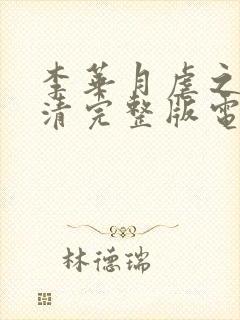 李華月虐之
清完整版電
林德瑞